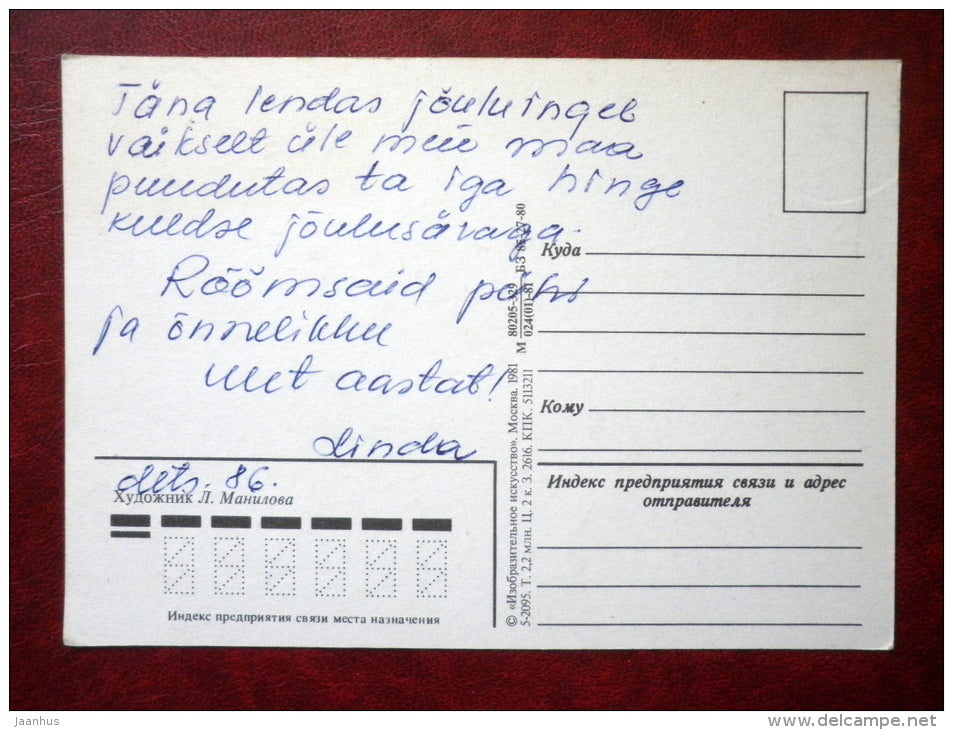 Täna lendas jõuluingel
vaikselt üle meie maa
puudutas ta iga hinge
kuldse jõulusäraga.
Rõõmsaid pühi
ja õnnelikku
uut aastat!
Linda
dets. 86.
Художник Л. Манилова
Индекс предприятия связи места назначения
© «Изобразительное искусство». Москва. 1981
5-2095. Т. 2,2 млн. Ц. 2 к. З. 2616. КПК. 5113211
М 80205-329 БЗ 85-27-80
024(01)-81
Куда
Кому
Индекс предприятия связи и адрес
отправителя
Jaanhus
delcampe.net